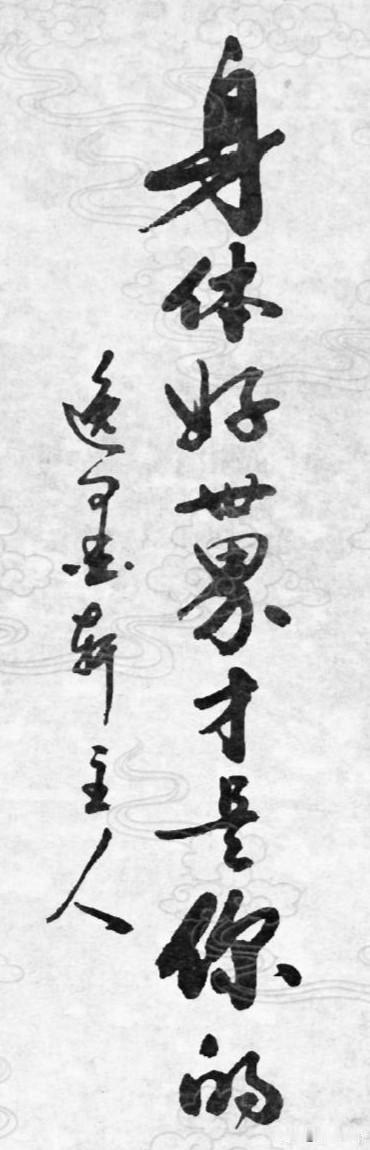 身体好世界才是你的
逸墨轩主人